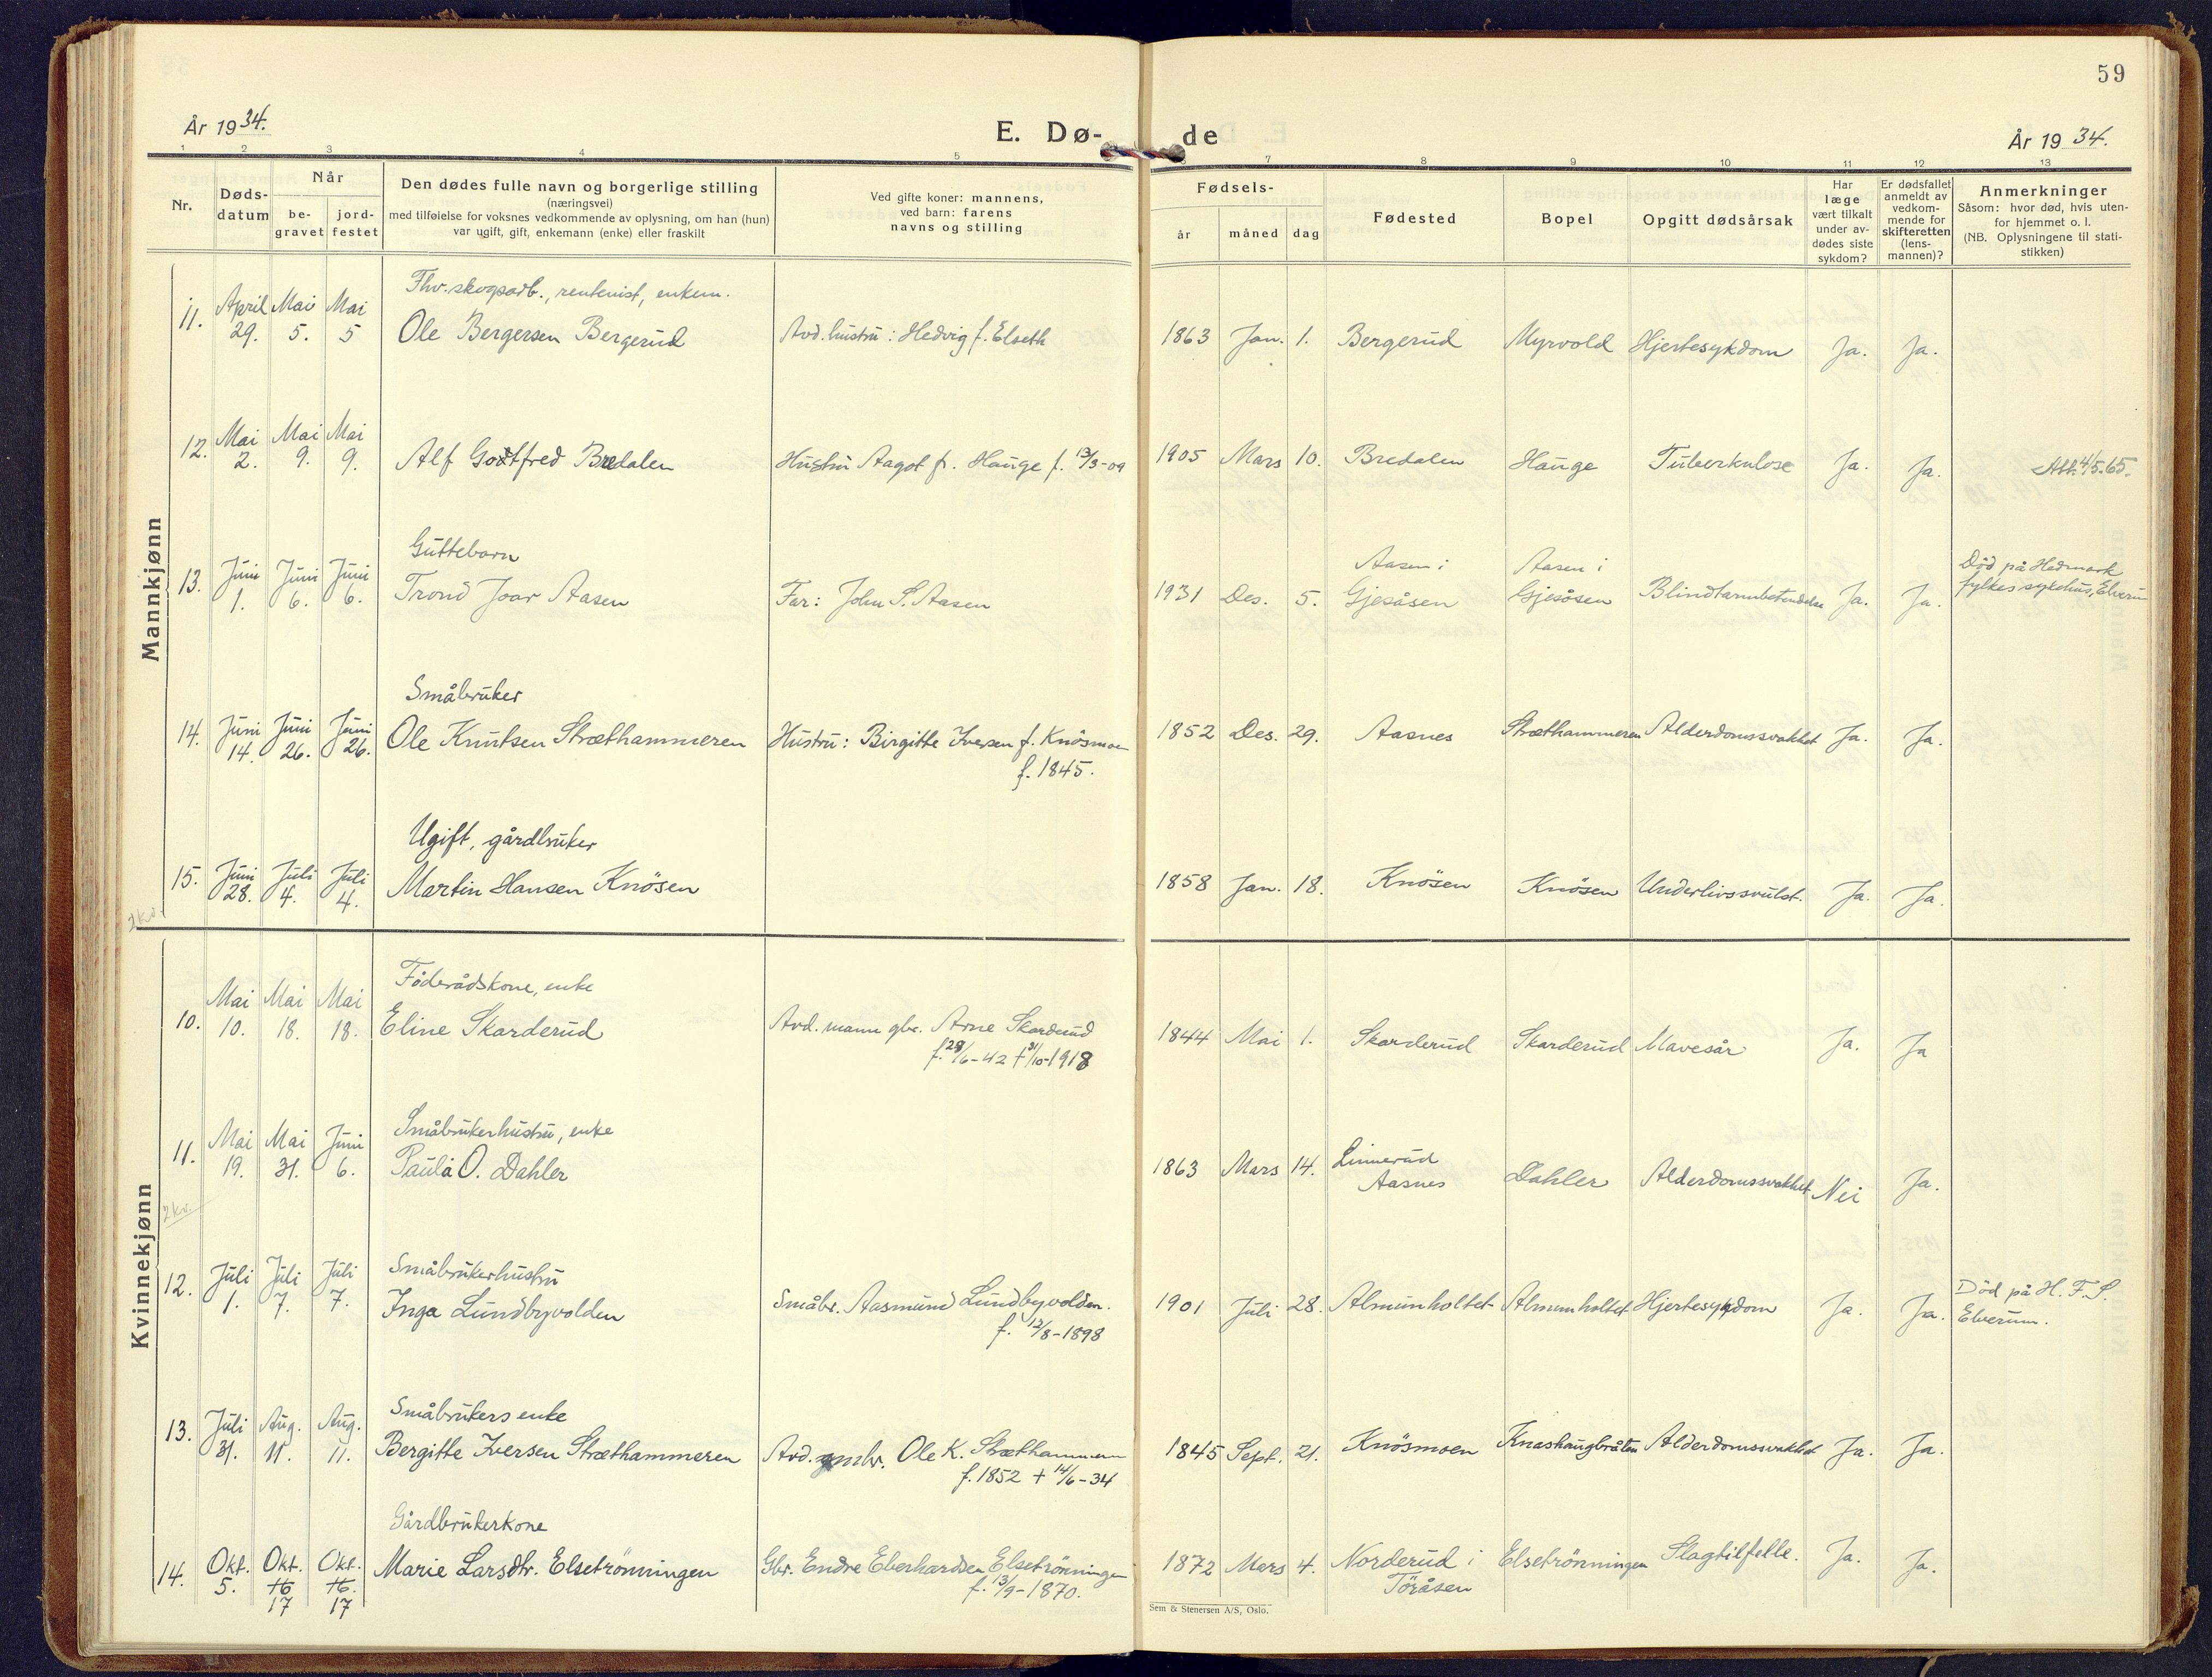 59
År 1934.
E. Dø-
de
År 1934.
1 2 3 4 5 7 8 9 10 11 12 13
Nr.
Døds-
datum
Når
be-
gravet
jord-
festet
Den dødes fulle navn og borgerlige stilling
(næringsvei)
med tilføielse for voksnes vedkommende av oplysning, om han (hun)
var ugift, gift, enkemann (enke) eller fraskilt
Ved gifte koner: mannens,
ved barn: farens
navns og stilling
Fødsels-
år måned dag
Fødested
Bopel
Opgitt dødsårsak
Har
læge
vært tilkalt
under av-
dødes siste
sykdom?
Er dødsfallet
anmeldt av
vedkom-
mende for
skifteretten
(lens-
mannen)?
Anmerkninger
Såsom: hvor død, hvis uten-
for hjemmet o. l.
(NB. Oplysningene til stati-
stikken)
Mannkjønn
Thv. skogsarb., rentenist, enkem.
11. April 29. Mai 5. Mai 5 Ole Bergersen Bergerud Avd. hustru: Hedvig f. Elseth 1863 Jan. 1. Bergerud Myrvold Hjertesykdom Ja. Ja.
12. Mai 2. Mai 9. Mai 9. Alf Gottfred Bredalen Hustru Aagot f. Hauge f. 13/3-09 1905 Mars 10. Bredalen Hauge Tuberkulose Ja. Ja. Att. 4/5.65.
Guttebarn
13. Juni 1. Juni 6. Juni 6. Trond Joar Aasen Far: John S. Aasen 1931 Des. 5. Aasen i Gjesåsen Aasen i Gjesåsen Blindtarmbetendelse Ja. Ja. Död på Hedmark
fylkes sykehus, Elverum
Småbruker
14. Juni 14. Juni 26. Juni 26. Ole Knutsen Stræthammeren Hustru: Birgitte Iversen f. Knösmoen
f. 1845.
1852 Des. 29. Aasnes Stræthammeren Alderdomssvakhet Ja. Ja.
Ugift, gårdbruker
15. Juni 28. Juli 4. Juli 4. Martin Hansen Knösen 1858 Jan. 18. Knösen Knösen Underlivssvulst. Ja. Ja.
2 kv.
Kvinnekjønn
Föderådskone, enke
10. Mai 10. Mai 18. Mai 18. Eline Skarderud Avd. mann gbr. Arne Skarderud
f. 29/6-42 † 31/10-1918
1844 Mai 1. Skarderud Skarderud Mavesår Ja. Ja
Småbrukerhustru, enke
11. Mai 19. Mai 31. Juni 6. Paula O. Dahler 1863 Mars 14. Linnerud
Aasnes Dahler Alderdomssvakhet Nei Ja.
2 kv.
Småbrukerhustru
12. Juli 1. Juli 7. Juli 7. Inga Lundbyvolden Småbr. Aasmund Lundbyvolden.
f. 12/8-1898
1901 Juli 28. Almunholtet Almunholtet Hjertesykdom Ja. Ja. Död på H. F. S.
Elverum.
Småbrukers enke
13. Juli 31. Aug. 11. Aug. 11. Bergitte Iversen Stræthammeren Avd. Ole K. Stræthammeren
f. 1852 + 14/6-34
1845 Sept. 21. Knösmoen Knashaugbråten Alderdomssvakhet Ja. Ja.
Gårdbrukerkone
14. Okt. 5. Okt. 16 17 Okt. 16. 17 Marie Larsdtr. Elsetrönningen Gbr. Endre Eberhardsen Elsetrönningen
f. 13/9-1870.
1872 Mars 4. Norderud i
Töråsen Elsetrönningen Slagtilfelle. Ja. Ja.
Sem & Stenersen A/S, Oslo.